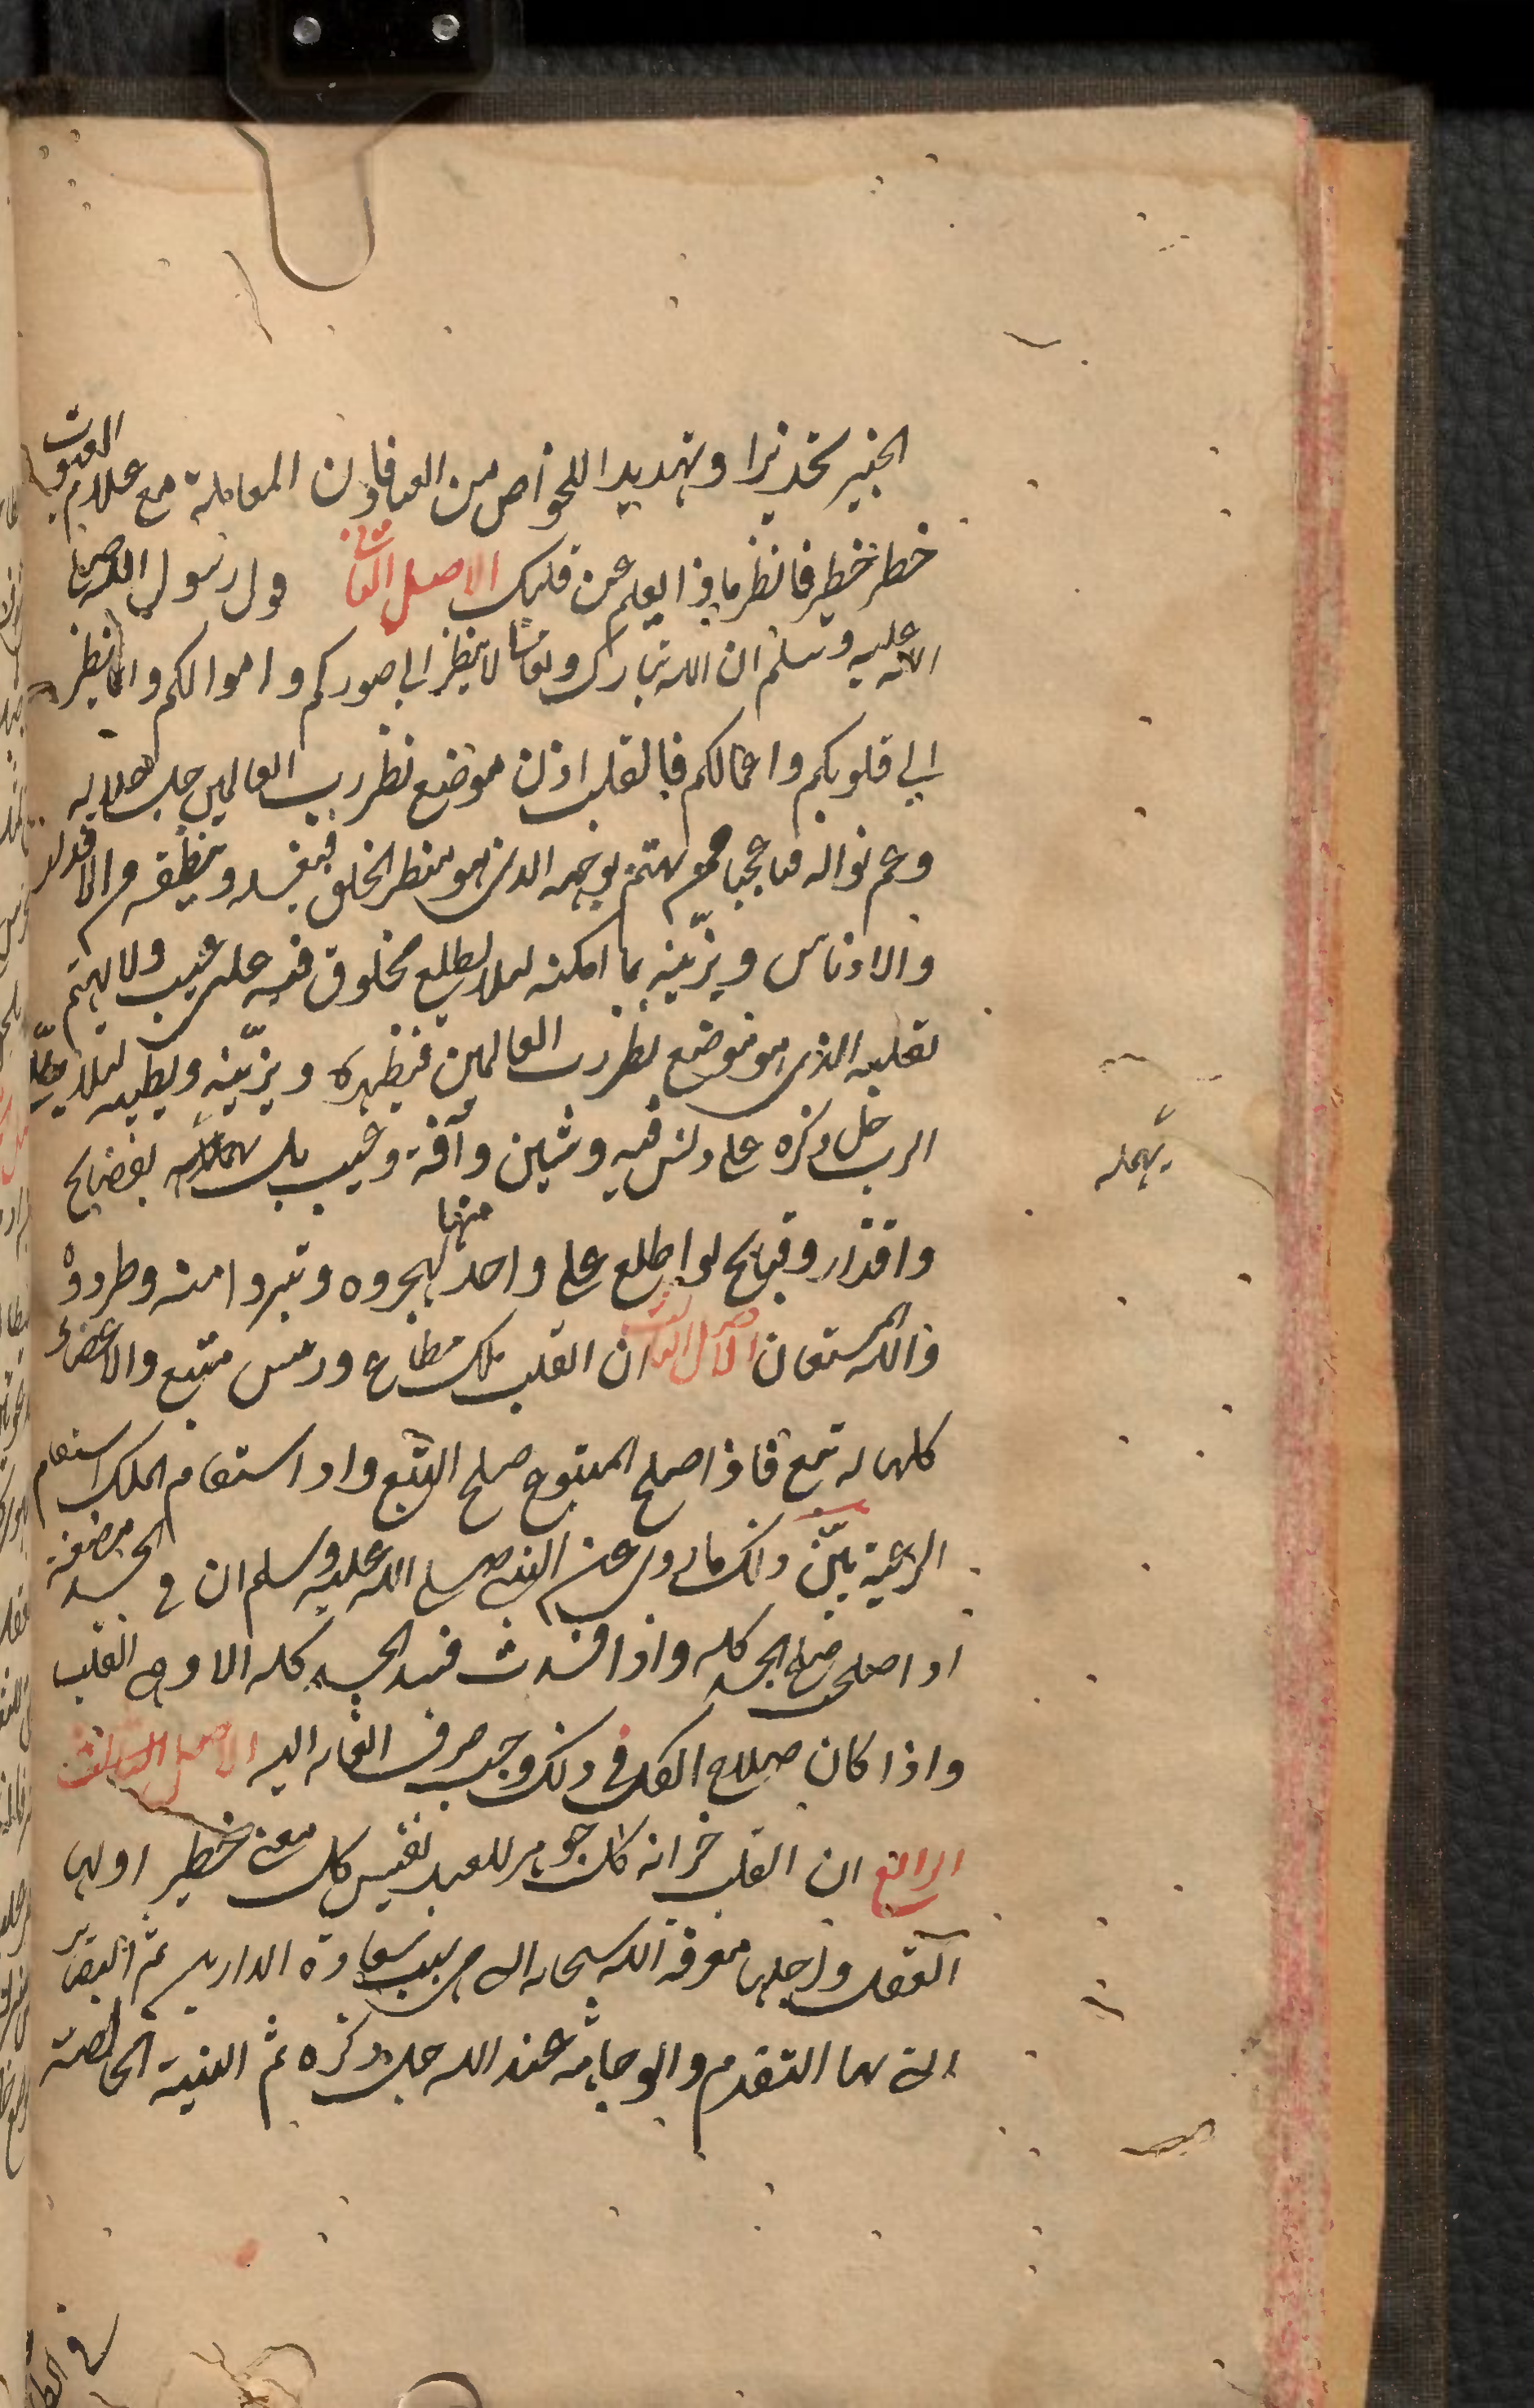 الخبير تحذيرا وتهديدا للخواص من العباد فان المعاملة مع علام الغيوب
خطر خطير فانظر ماذا يعلم من قلبك الاصل الثانى قول رسول الله صلى
الله عليه وسلم ان الله تبارك وتعالى لا ينظر الى صوركم واموالكم وانما ينظر
الى قلوبكم واعمالكم فالقلب اذن موضع نظر رب العالمين جل جلاله
وعم نواله فيا عجبا ممن يهتم بوجهه الذى هو منظر الخلق فيغسله وينظفه من الاقذار
والادناس ويزينه بما امكنه لئلا يطلع مخلوق فيه على عيب ولا يهتم
بقلبه الذى هو موضع نظر رب العالمين فيطهره ويزينه ويطيبه لئلا يطلع
الرب جل ذكره على دنس فيه وشين وآفة وعيب بل يهمله بفضايح
يهمله
واقذار وقبايح لو اطلع على واحد منها لهجروه وتبروا منه وطردوه
والله المستعان الاصل الثالث ان القلب ملك مطاع ورئيس متبع والاعضاء
كلها له تبع فاذا صلح المتبوع صلح التبع واذا استقام الملك استقام
الرعية يبين ذلك ما روى عن النبى صلى الله عليه وسلم ان فى الجسد مضغة
اذا صلحت صلح الجسد كله واذا فسدت فسد الجسد كله الا وهى القلب
واذا كان صلاح الكل فى ذلك وجب صرف العناية اليه الاصل
الرابع ان القلب خزانة كل جوهر للعبد نفيس كل معنى خطير اولها
العقل واجلها معرفة الله سبحانه التى هى سبب سعادة الدارين ثم البصاير
التى بها التقدم والوجاهة عند الله جل ذكره ثم النية الخالصة